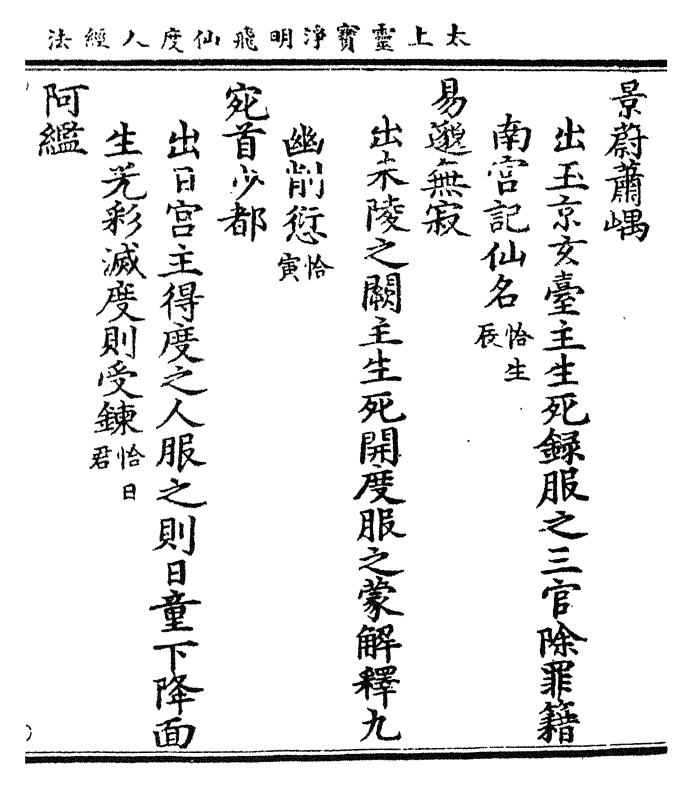 太上靈寶淨明飛仙度人經法
景蔚蕭嵎
出玉京亥臺主生死録服之三官除罪籍
南宮記仙名恰生辰
易邈無寂
出木陵之闕主生死開度服之蒙解釋九
幽削愆恰寅
宛首少都
出日宮主得度之人服之則日童下降面
生光彩滅度則受鍊恰日君
阿䘓